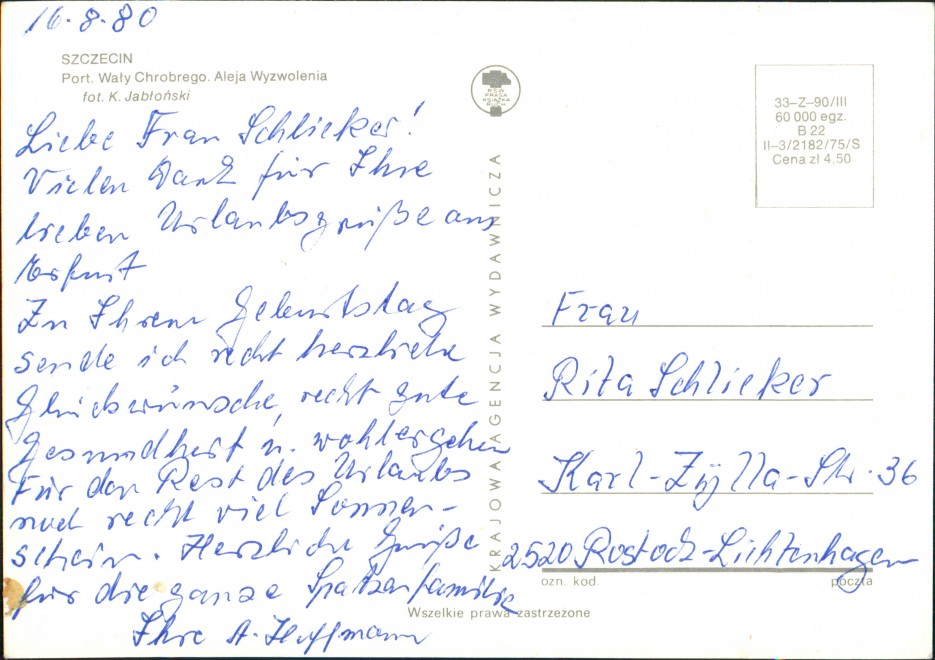 16.8.80
SZCZECIN
Port. Wały Chrobrego. Aleja Wyzwolenia
fot. K. Jabłoński
Liebe Frau Schlieker!
Vielen Dank für Ihre
lieben Urlaubsgrüße aus
Erfurt
Zu Ihrem Geburtstag
sende ich recht herzliche
Glückwünsche, recht gute
Gesundheit u. wohlergehen
Für den Rest des Urlaubs
noch recht viel Sonnen-
schein. Herzliche Grüße
für die ganze Spatzenfamilie
Ihre A. Hoffmann
RSW
PRASA
KSIĄŻKA
RUCH
KRAJOWA AGENCJA WYDAWNICZA
33-Z-90/III
60 000 egz.
B 22
II-3/2182/75/S
Cena zł 4,50
Frau
Rita Schlieker
Karl-Zylla-Str. 36
2520 Rostock-Lichtenhagen
ozn. kod. poczta
Wszelkie prawa zastrzeżone